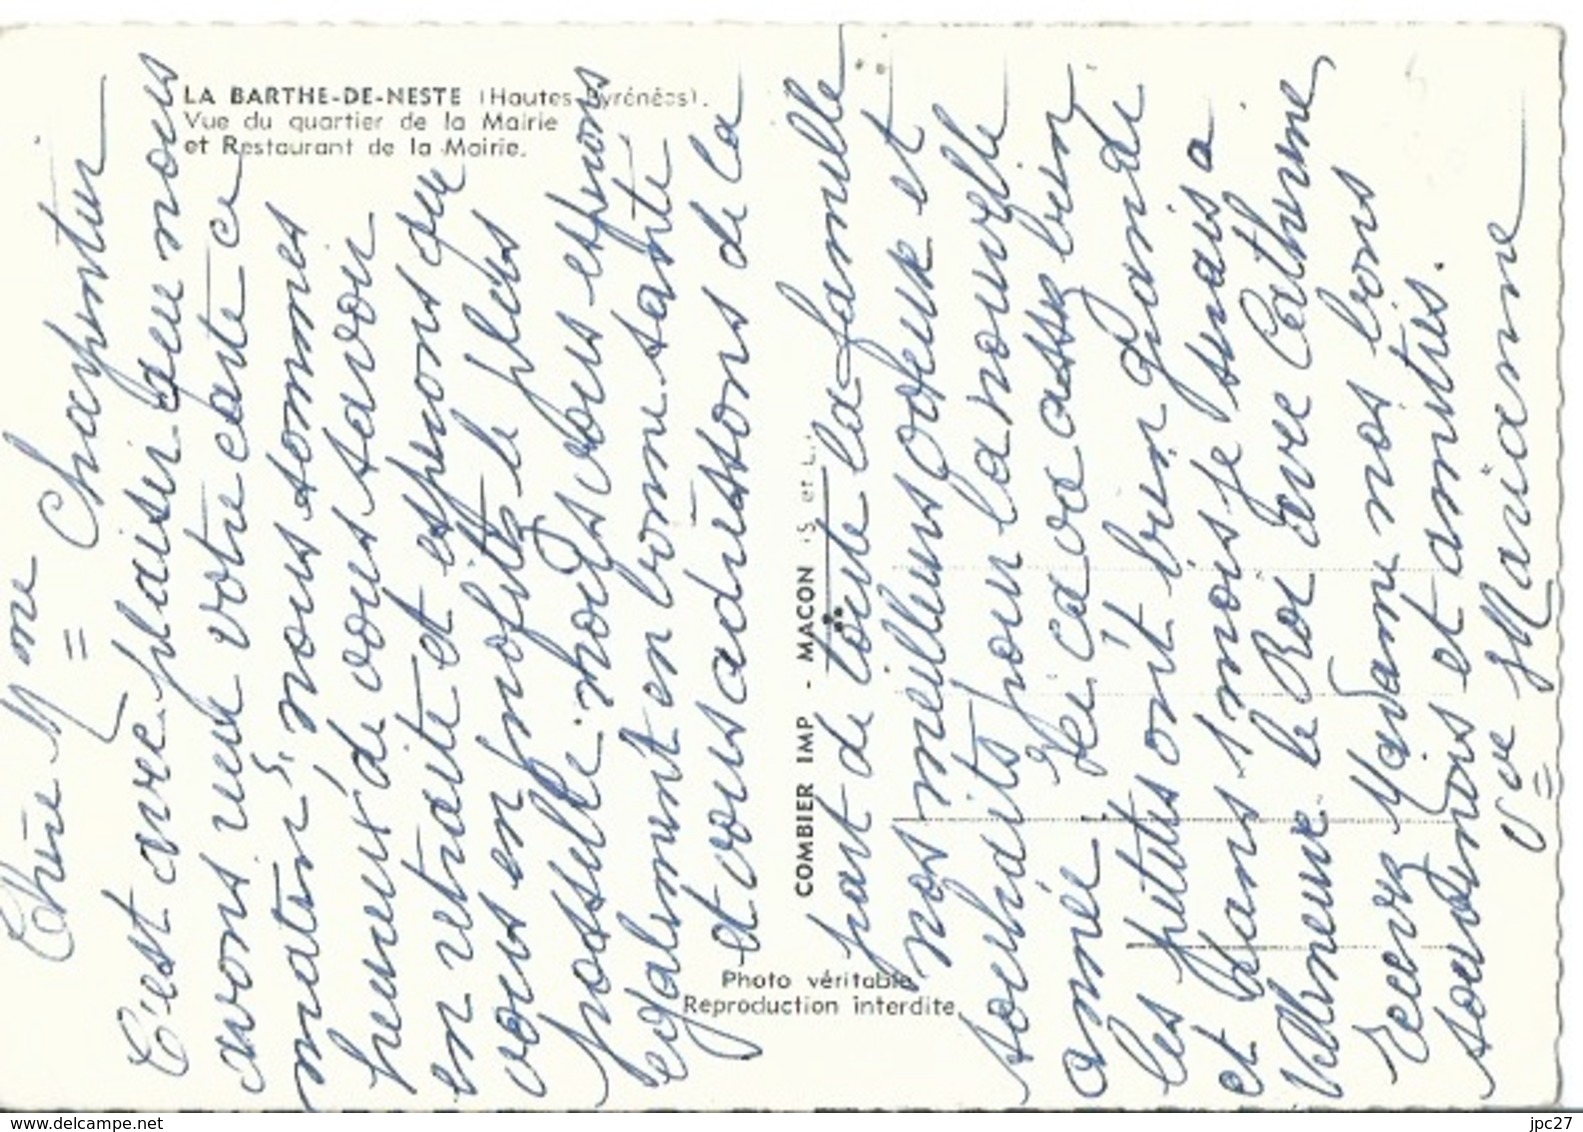 LA BARTHE-DE-NESTE (Hautes-Pyrénées).
Vue du quartier de la Mairie
et Restaurant de la Mairie.
Chère Mme Charpentier
C'est avec plaisir que nous
avons reçu votre carte ce
matin, nous sommes
heureux de vous savoir
en retraite et espérons que
vous en profitez le plus
possible. nous vous espérons
également en bonne santé
et vous adressons de la
COMBIER IMP - MACON (S. et L.)
part de toute la famille
nos meilleurs voeux et
souhaits pour la nouvelle
année. Ici ça va assez bien
les petites ont bien grandi
et dans 1 mois je serais a
Villeneuve le Roi avec Catherine
Recevez Madame nos bons
souvenirs et amitiés.
Vve Marianne
Photo véritable
Reproduction interdite
www.delcampe.net
jpc27